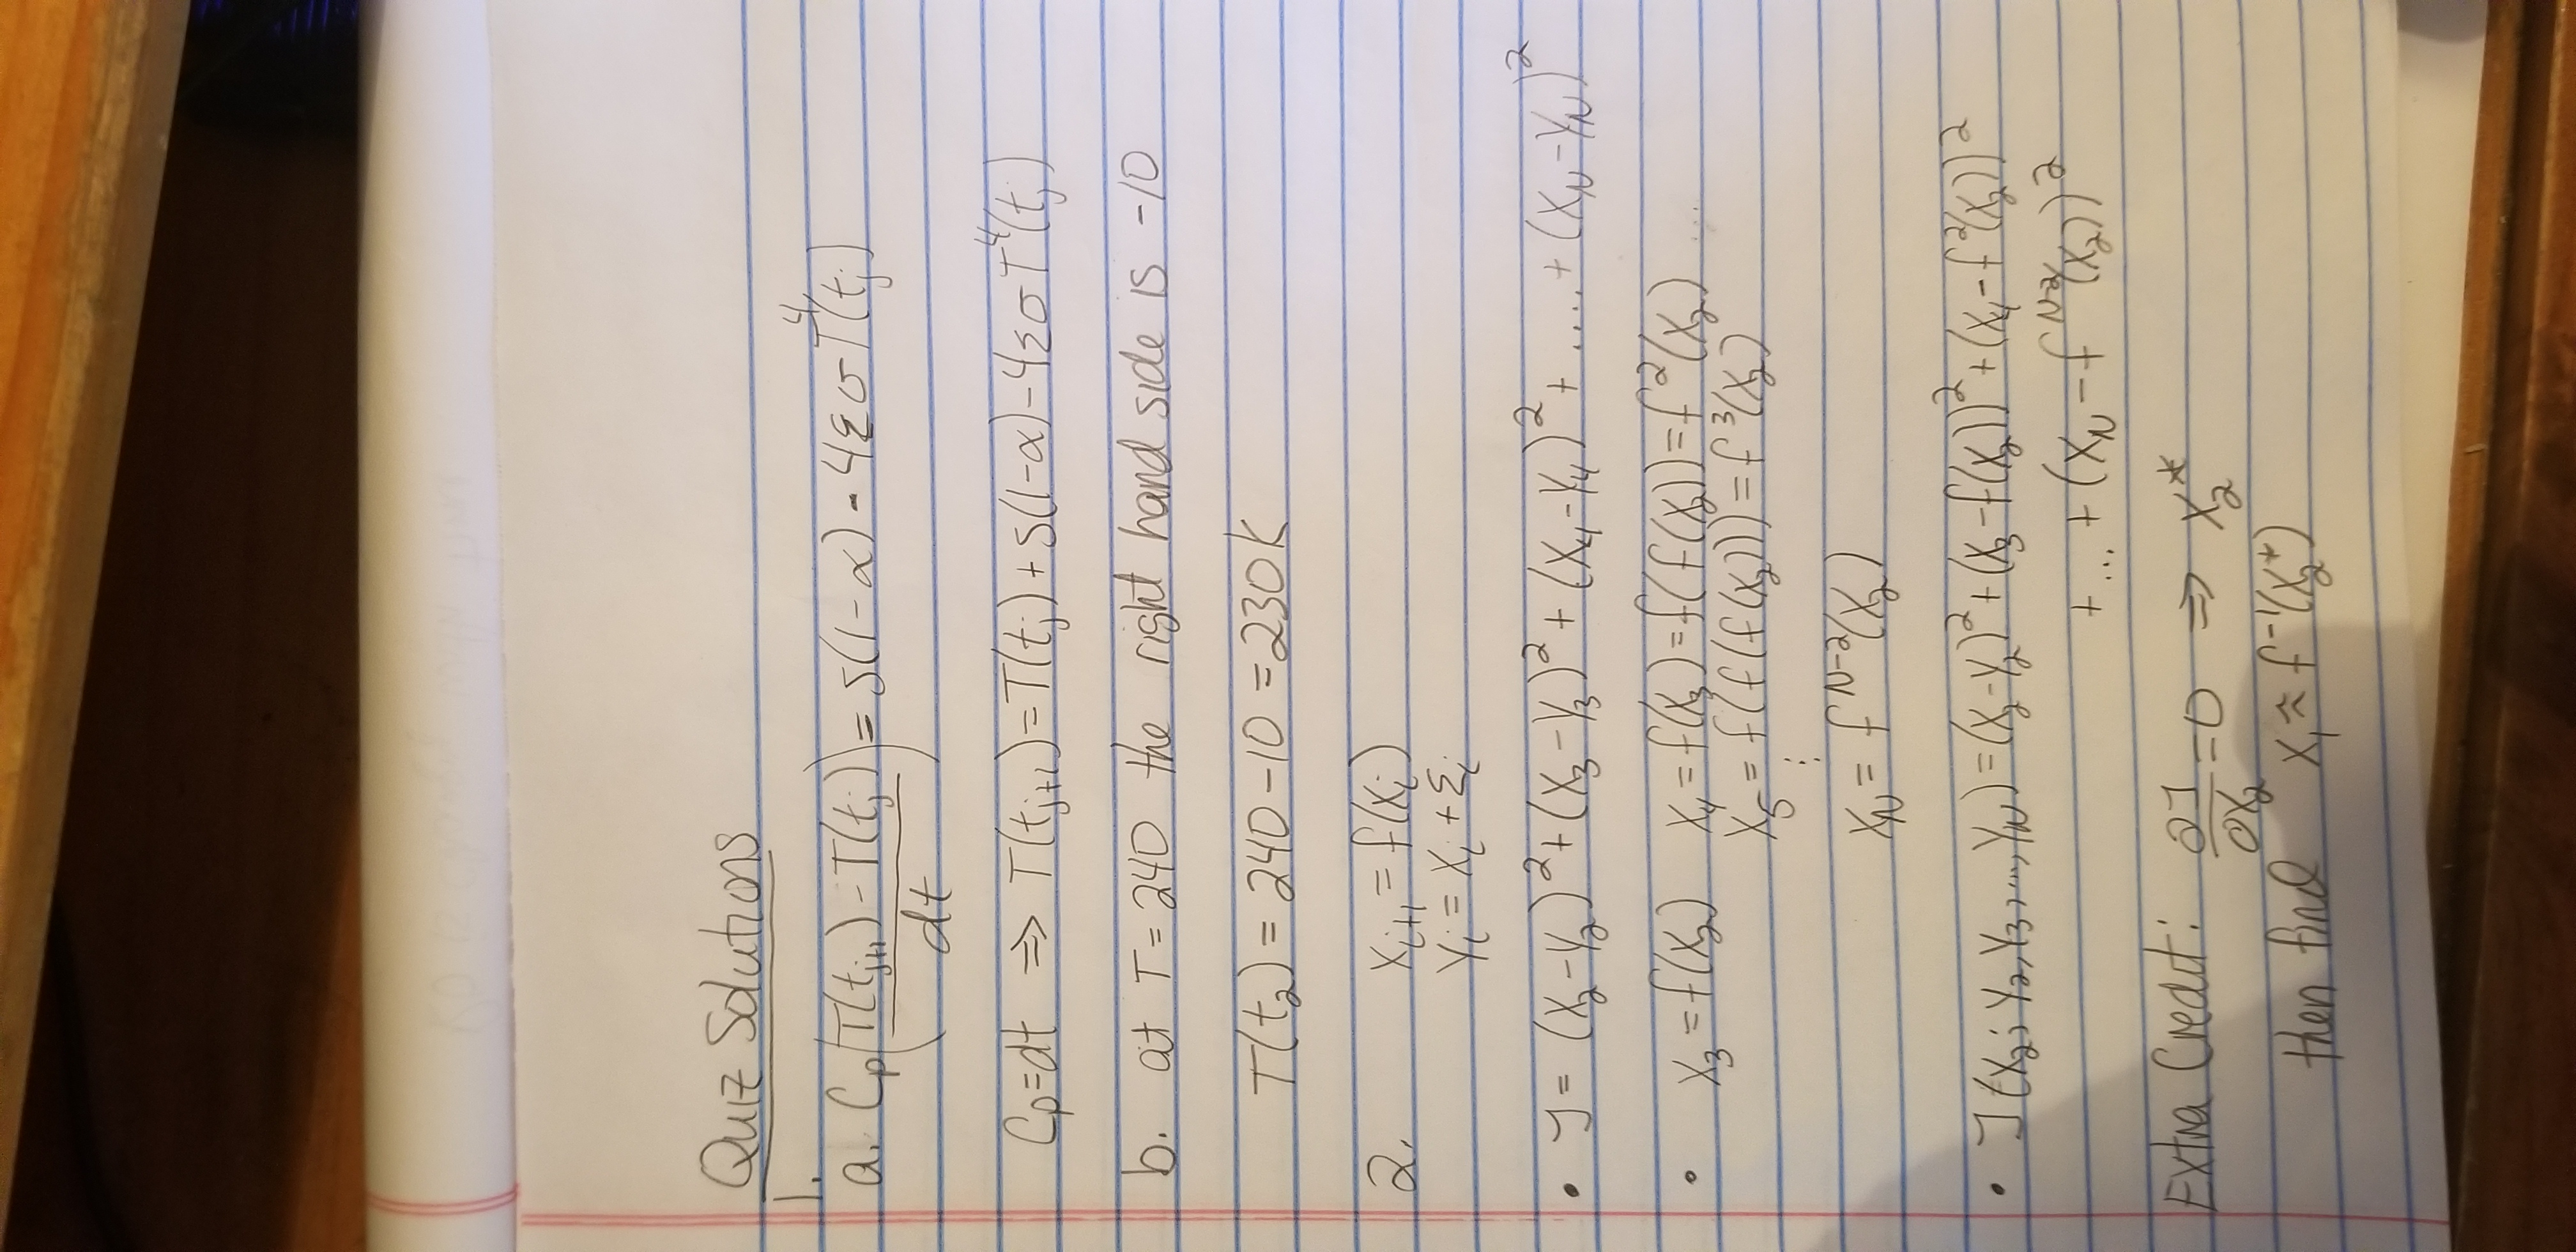 Quiz Solutions
1.
a. Cp(T(tj+1) - T(tj) / dt) = S(1-α) - 4εσT⁴(tj)
Cp=dt ⇒ T(tj+1)=T(tj)+S(1-α)-4εσT⁴(tj)
b. at T=240 the right hand side is -10
T(t₂) = 240-10 = 230K
2. Xi+1 = f(Xi)
Yi = Xi + εi
• J = (X₂-Y₂)² + (X₃-Y₃)² + (X₄-Y₄)² + ..... + (XN-YN)²
• X₃ = f(X₂) X₄ = f(X₃) = f(f(X₂)) = f²(X₂) ...
X₅ = f(f(f(X₂))) = f³(X₂)
⋮
XN = f^N-2(X₂)
• J(X₂; Y₂, Y₃, ..., YN) = (X₂-Y₂)² + (X₃-f(X₂))² + (X₄-f²(X₂))²
+ ... + (XN - f^N-2(X₂))²
Extra Credit: ∂J/∂X₂ = 0 ⇒ X₂*
then find X₁ ≈ f⁻¹(X₂*)